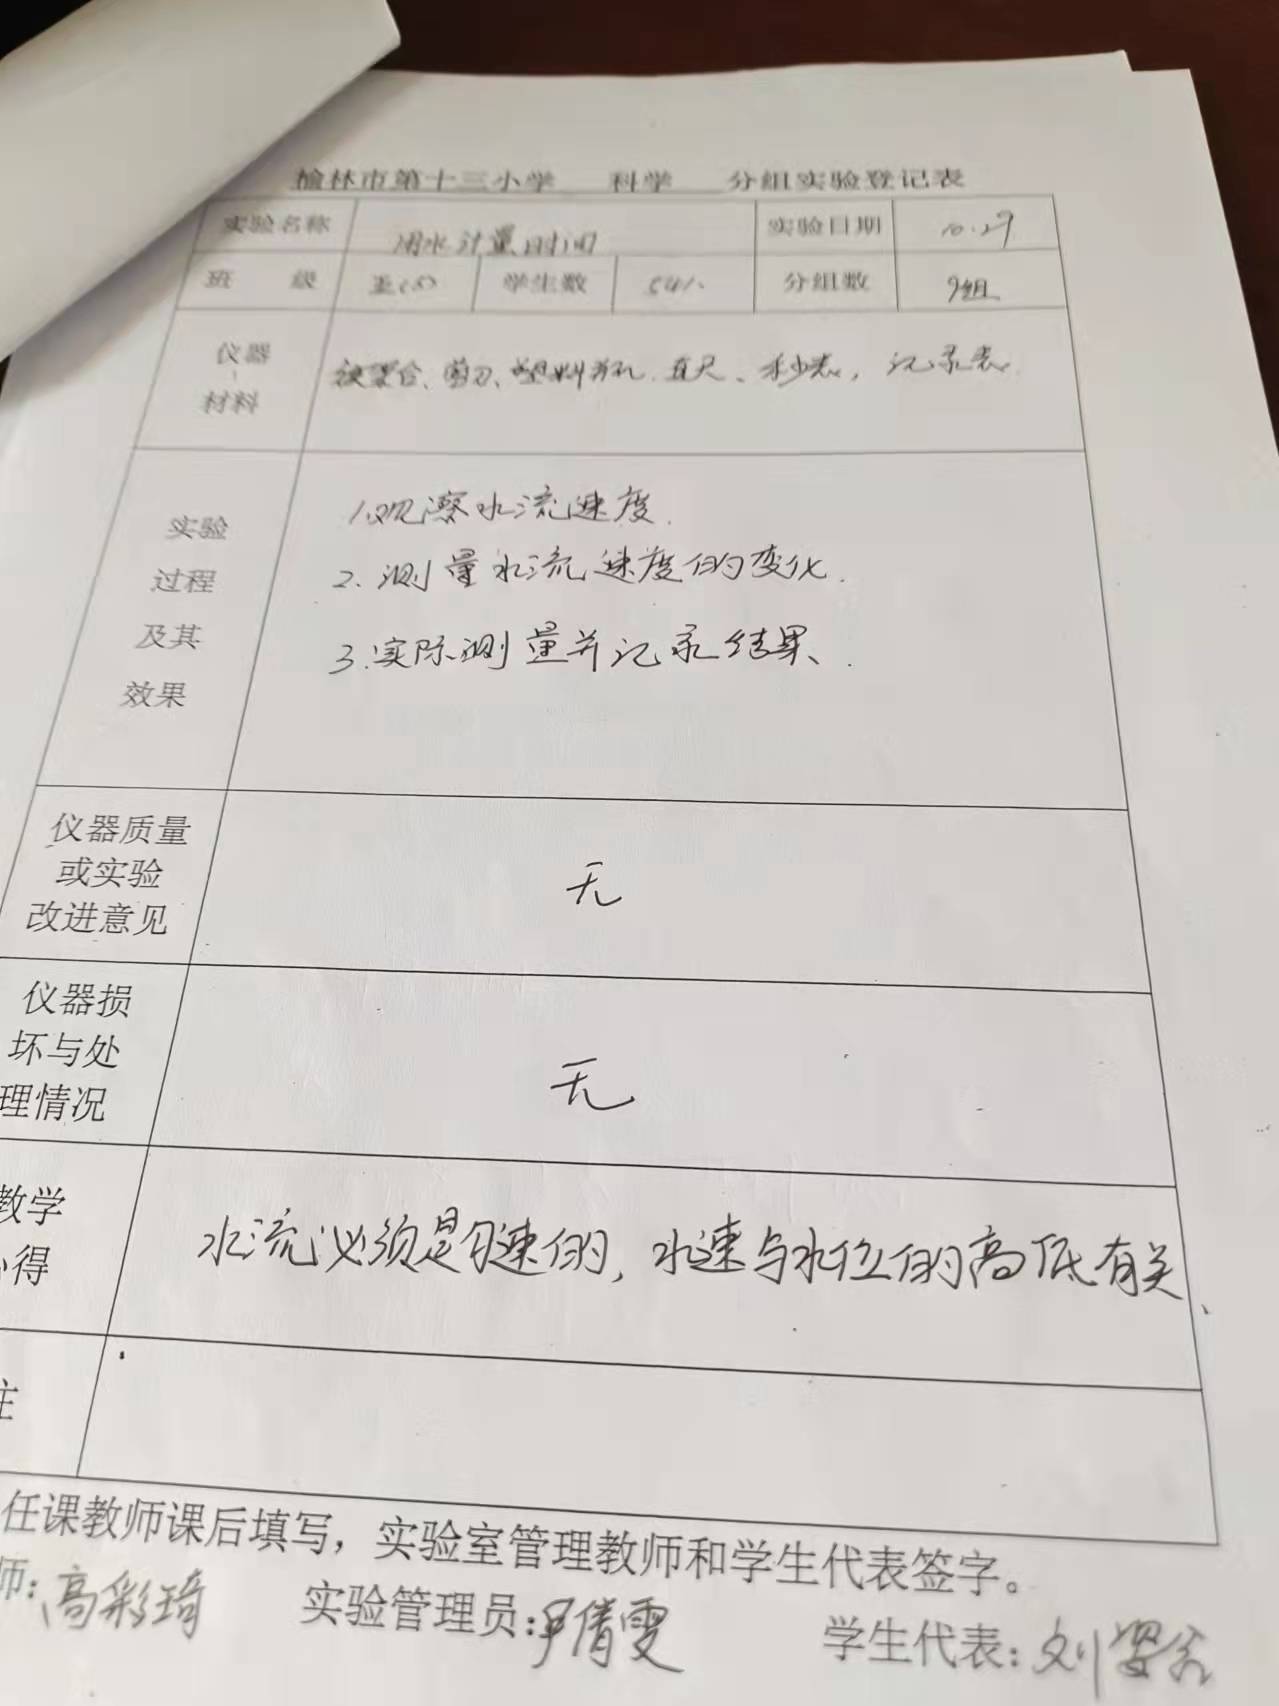 榆林市第十三小学 科学 分组实验登记表
实验名称 用水计量时间 实验日期 10.29
班 级 五(5) 学生数 54人 分组数 9组
仪器
材料
剪刀、塑料瓶、直尺、秒表，记录表.
实验
过程
及其
效果
1.观察水流速度.
2.测量水流速度的变化.
3.实际测量并记录结果、.
仪器质量
或实验
改进意见
无
仪器损
坏与处
理情况
无
教学
心得
水流必须是匀速的, 水速与水位的高低有关、
注
任课教师课后填写，实验室管理教师和学生代表签字。
师:高彩琦 实验管理员:尹倩雯 学生代表:刘